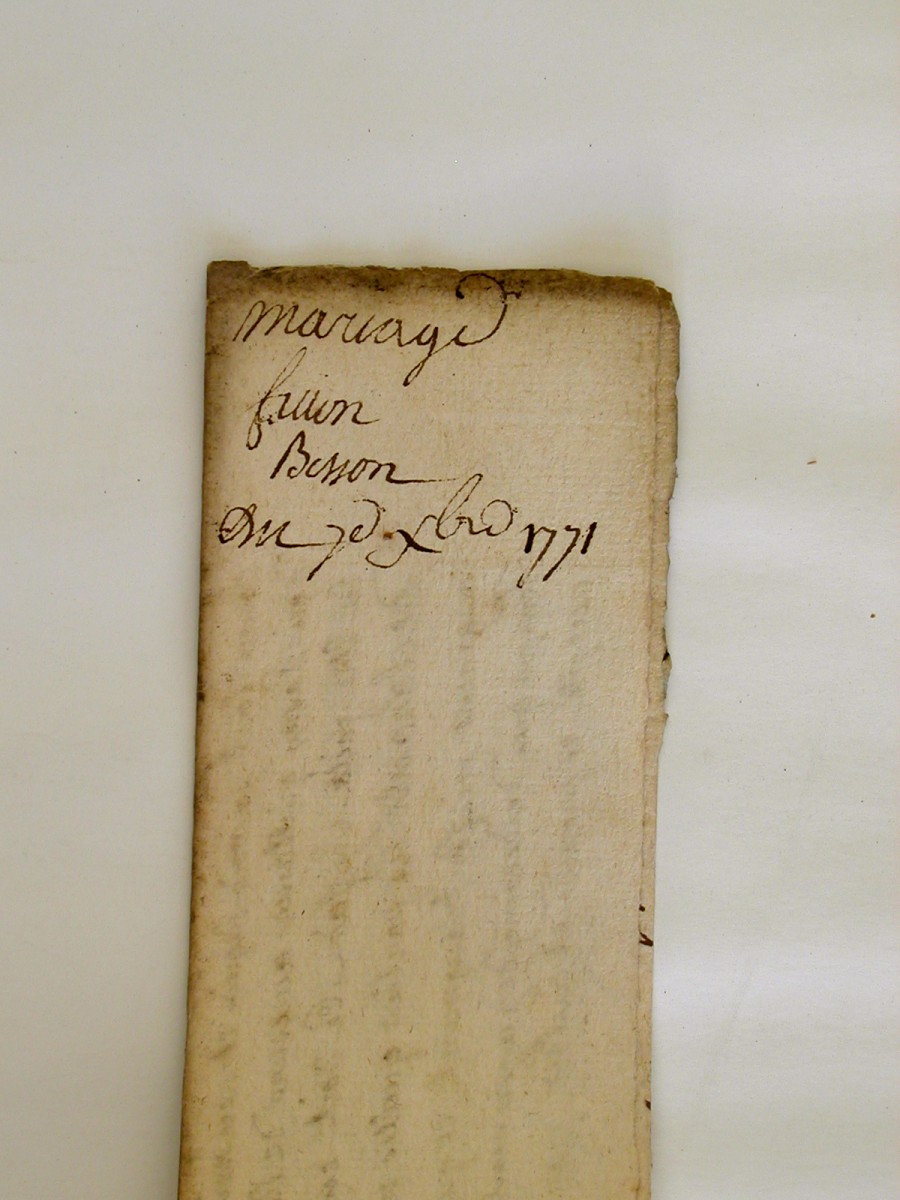 mariage
Besson
Du 7e xbre 1771